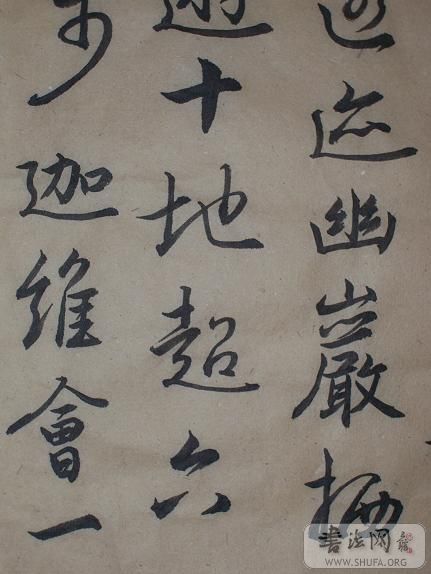 匿迹幽巖栖
遊十地超六
步迦維會一
書法网
WWW.SHUFA.ORG